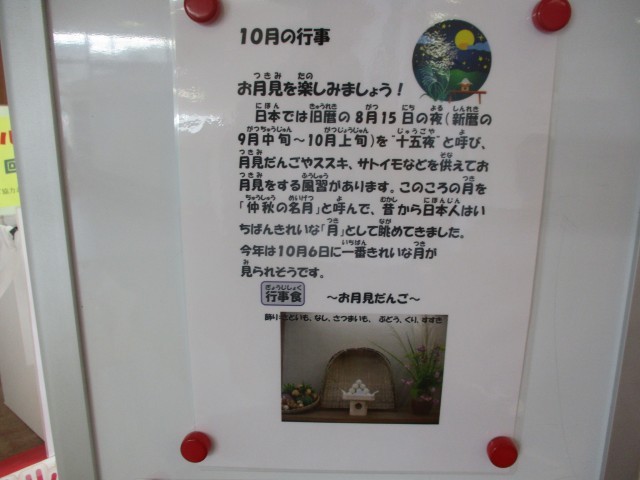 10月の行事
お月見を楽しみましょう！
日本では旧暦の8月15日の夜(新暦の
9月中旬～10月上旬)を"十五夜"と呼び、
月見だんごやススキ、サトイモなどを供えてお
月見をする風習があります。このころの月を
「仲秋の名月」と呼んで、昔から日本人はい
ちばんきれいな「月」として眺めてきました。
今年は10月6日に一番きれいな月が
見られそうです。
行事食 ～お月見だんご～
飾り:こといも、なし、さつまいも、ぶどう、くり、すすき